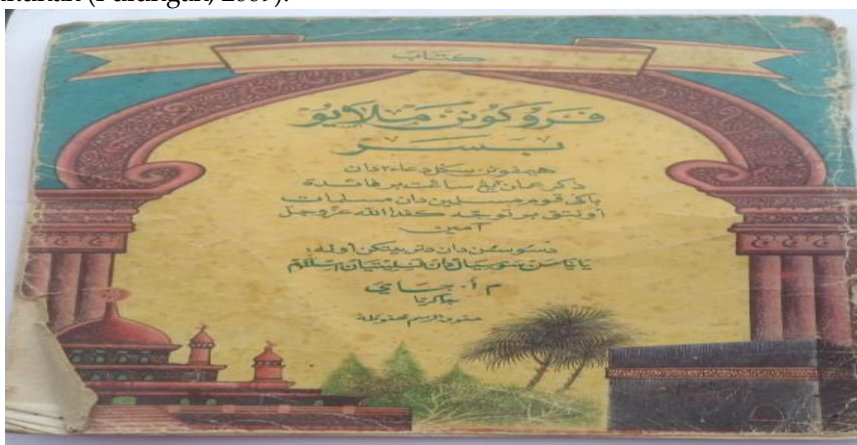 كتاب
فروكونن ملايو
بسر
همفونن سكل دعاء٢ دان
ذكر عمان يڠ ساڠت برفائدة
باكي قوم مسلمين دان مسلمات
اونتق برتوجه كفد الله عز وجل
آمين
دسوسن دان دتربيتكن اوله:
ياياسن سوسيال دان فنليتيان اسلام
م أ. جاي
جاكرتا
حقوق الرسم محفوظة